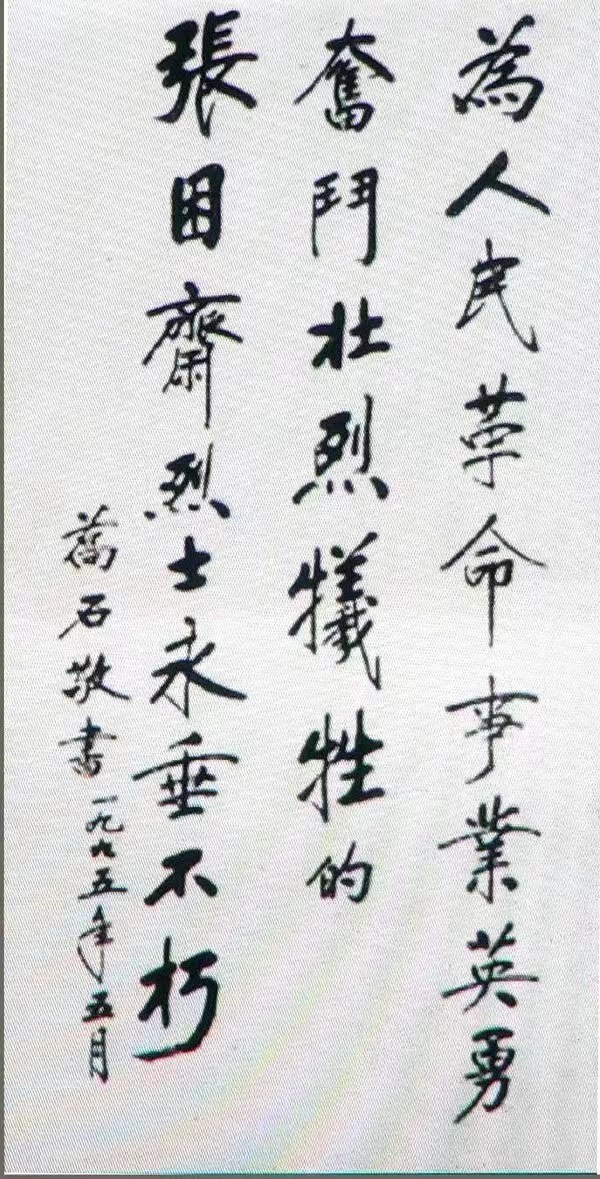 為人民革命事業英勇
奮鬥壯烈犧牲的
張困齋烈士永垂不朽
萬石敬書一九九五年五月